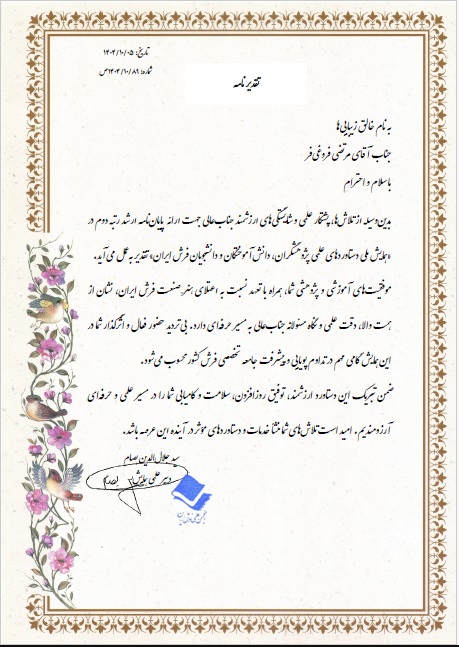 تاریخ: ۱۴۰۴/۱۰/۰۵
شماره: ۱۴۰۴/۱۰/۸۹ص
تقدیرنامه
به نام خالق زیبایی‌ها
جناب آقای مرتضی فروغی‌فر
با سلام و احترام
بدین‌وسیله از تلاش‌ها، پشتکار علمی و شایستگی‌های ارزشمند جناب‌عالی جهت ارائه پایان‌نامه ارشد رتبه دوم در
«همایش ملی دستاوردهای علمی پژوهشگران، دانش‌آموختگان و دانشجویان فرش ایران» تقدیر به عمل می‌آید.
موفقیت‌های آموزشی و پژوهشی شما، همراه با تعهد نسبت به اعتلای هنر-صنعت فرش ایران، نشان از
همت والا، دقت علمی و نگاه مسئولانه جناب‌عالی به مسیر حرفه‌ای دارد. بی‌تردید حضور فعال و اثرگذار شما در
این همایش گامی مهم در تداوم پویایی و پیشرفت جامعه تخصصی فرش کشور محسوب می‌شود.
ضمن تبریک این دستاورد ارزشمند، توفیق روزافزون، سلامت و کامیابی شما را در مسیر علمی و حرفه‌ای
آرزومندیم. امید است تلاش‌های شما منشأ خدمات و دستاوردهای مؤثر در آینده این عرصه باشد.
سید جلال‌الدین بصام
دبیر علمی همایش
انجمن علمی فرش ایران